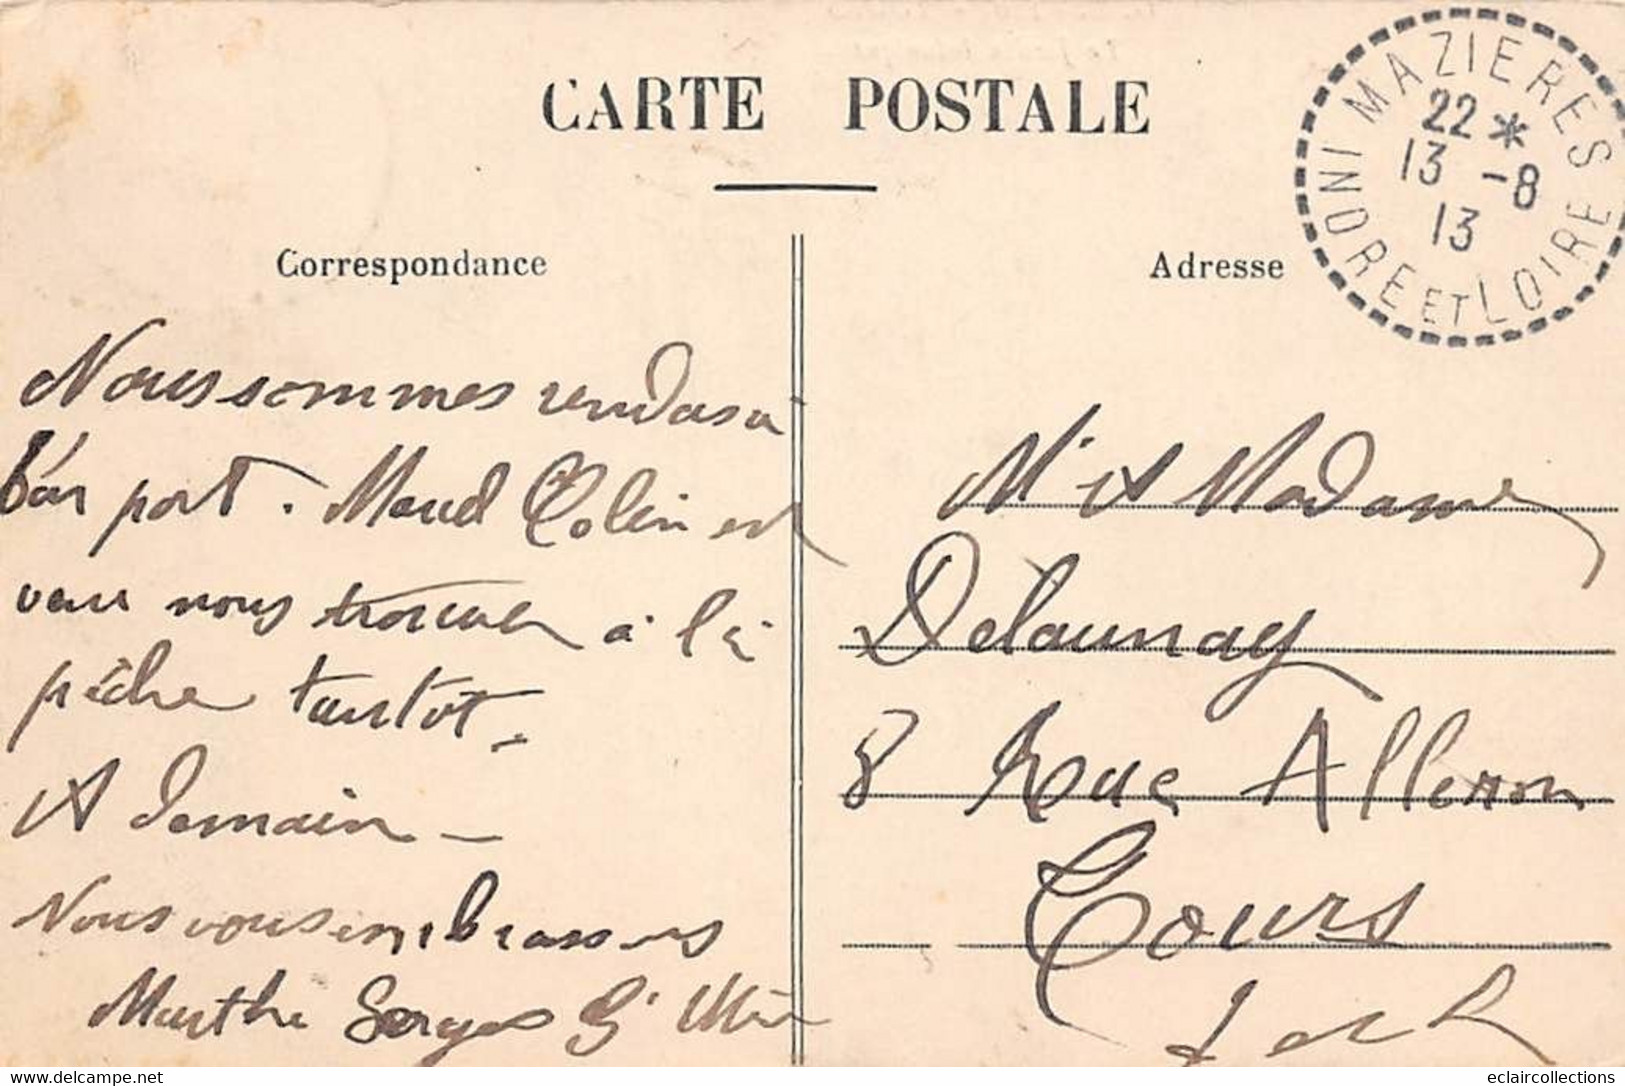 CARTE POSTALE
MAZIERES
22 *
13 -8
13
INDRE ET LOIRE
Correspondance
Adresse
Nous sommes rendus à
bon port. Maud Colin est
venu nous trouver à la
pêche tantôt.
A demain -
Nous vous embrassons
Marthe Serges G
M. et Madame
Delaunay
8 Rue Alleron
Tours
I et L
eclaircollections